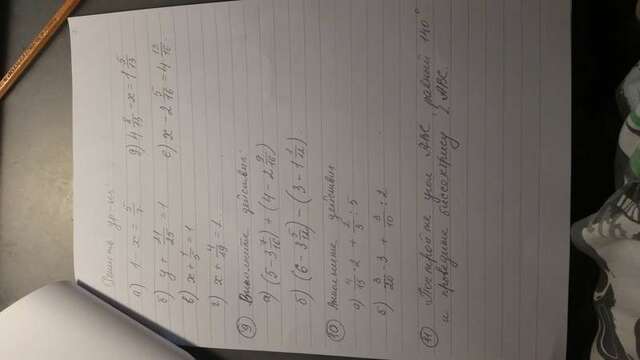 Решить ур-ия:
а) 1 - x = 5/7
д) 4 8/13 - x = 1 5/13
б) y + 21/25 = 1
е) x - 2 5/16 = 4 13/16.
в) x + 1/5 = 1
г) x + 4/19 = 1.
9 Выполните действия:
а) (5 - 3 7/16) + (4 - 2 9/16)
б) (6 - 3 5/12) - (3 - 1 1/12).
10 Выполните действия
а) 4/15 · 2 + 2/3 : 5
б) 3/20 · 3 + 3/10 : 2
11 Постройте угол ABC, равный 140°
и проведите биссектрису ∠ABC.